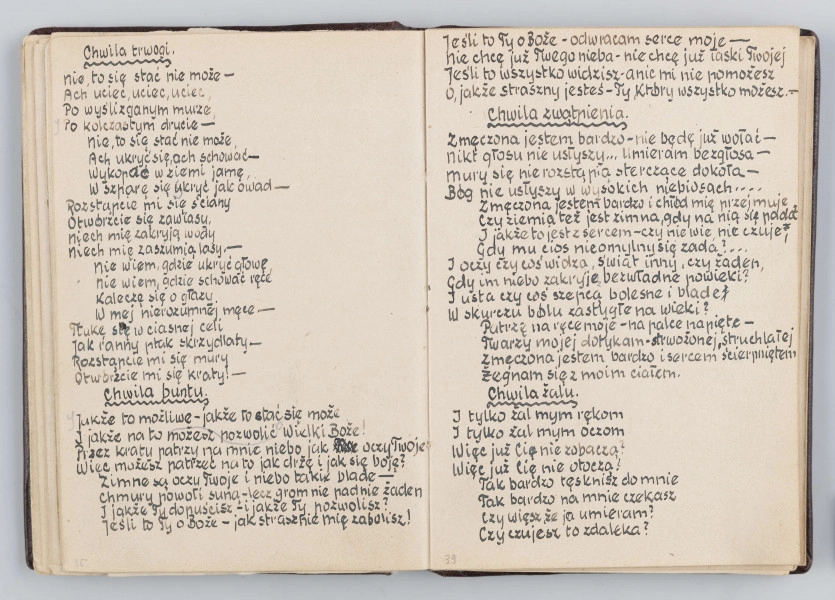 Chwila trwogi.
nie, to się stać nie może —
Ach uciec, uciec, uciec,
Po wyślizganym murze,
Po kolczastym drucie —
Nie, to się stać nie może,
Ach ukryć się, ach schować —
Wykopać w ziemi jamę,
W szparę się ukryć jak owad —
Rozstąpcie mi się ściany
Otwórzcie się zawiasy,
niech mię zakryją wody
Niech mię zaszumią lasy, —
Nie wiem, gdzie ukryć głowę,
nie wiem, gdzie schować ręce
Kaleczę się o głazy
W mej nierozumnej męce —
Tłukę się w ciasnej celi
Jak ranny ptak skrzydlaty —
Rozstąpcie mi się mury
Otwórzcie mi się kraty! —
Chwila buntu.
Jakże to możliwe – jakże to stać się może
I jakże na to możesz pozwolić Wielki Boże!
Przez kraty patrzy na mnie niebo jak oczy Twoje
Więc możesz patrzeć na to jak drżę i jak się boję?
Zimne są oczy Twoje i niebo takie blade —
Chmury powoli suną – lecz grom nie padnie żaden
I jakże Ty dopuścisz – i jakże Ty pozwolisz?
Jeśli to Ty o Boże – jak strasznie mię zabolisz!
35
Jeśli to Ty o Boże – odwracam serce moje —
nie chcę już Twego nieba – nie chcę już łaski Twojej
Jeśli to wszystko widzisz – a nic mi nie pomożesz
O, jakże straszny jesteś – Ty, który wszystko możesz. —
Chwila zwątpienia.
Zmęczona jestem bardzo – nie będę już wołać —
Nikt głosu nie usłyszy... Umieram bezgłosa —
mury się nie rozstąpią sterczące dokoła —
Bóg nie usłyszy w wysokich niebiosach....
Zmęczona jestem bardzo i chłód mię przejmuje
Czy ziemia też jest zimna, gdy na nią się pada?
I jakże to jest z sercem – czy nie wie nic czuje?,
Gdy mu cios nieomylny się zada?...
I oczy czy coś widzą, świat inny, czy żaden,
Gdy im niebo zakryje, bezwładne powieki?
I usta czy coś szepcą bolesne i blade,
W skurczu bólu zastygłe na wieki?
Patrzę na ręce moje – na palce napięte —
Twarzy mojej dotykam – strwożonej, struchlałej
Zmęczona jestem bardzo i sercem ścierpniętem
Żegnam się z moim ciałem.
Chwila żalu.
I tylko żal mym rękom
I tylko żal mym oczom
Więc już Cię nie zobaczą?
Więc już Cię nie otoczą?
Tak bardzo tęsknisz do mnie
Tak bardzo na mnie czekasz
Czy wiesz, że ja umieram?
Czy czujesz to zdaleka?
39